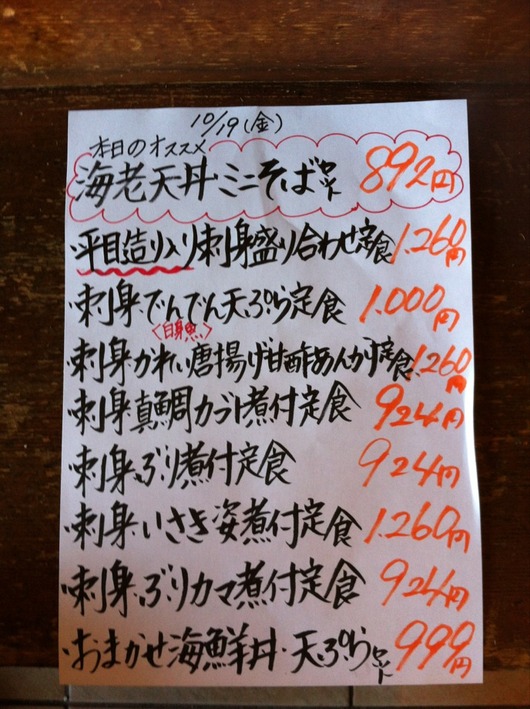 10/19(金)
本日のオススメ
海老天丼・ミニそばセット 892円
・平目造り入り刺身盛り合わせ定食 1.260円
・刺身・でんでん天ぷら定食 1.000円
〈白身魚〉
・刺身・かれい唐揚げ甘酢あんかけ定食 1.260円
・刺身・真鯛カブト煮付定食 924円
・刺身・ぶり煮付定食 924円
・刺身・いさき姿煮付定食 1.260円
・刺身・ぶりカマ煮付定食 924円
・おまかせ海鮮丼・天ぷらセット 999円